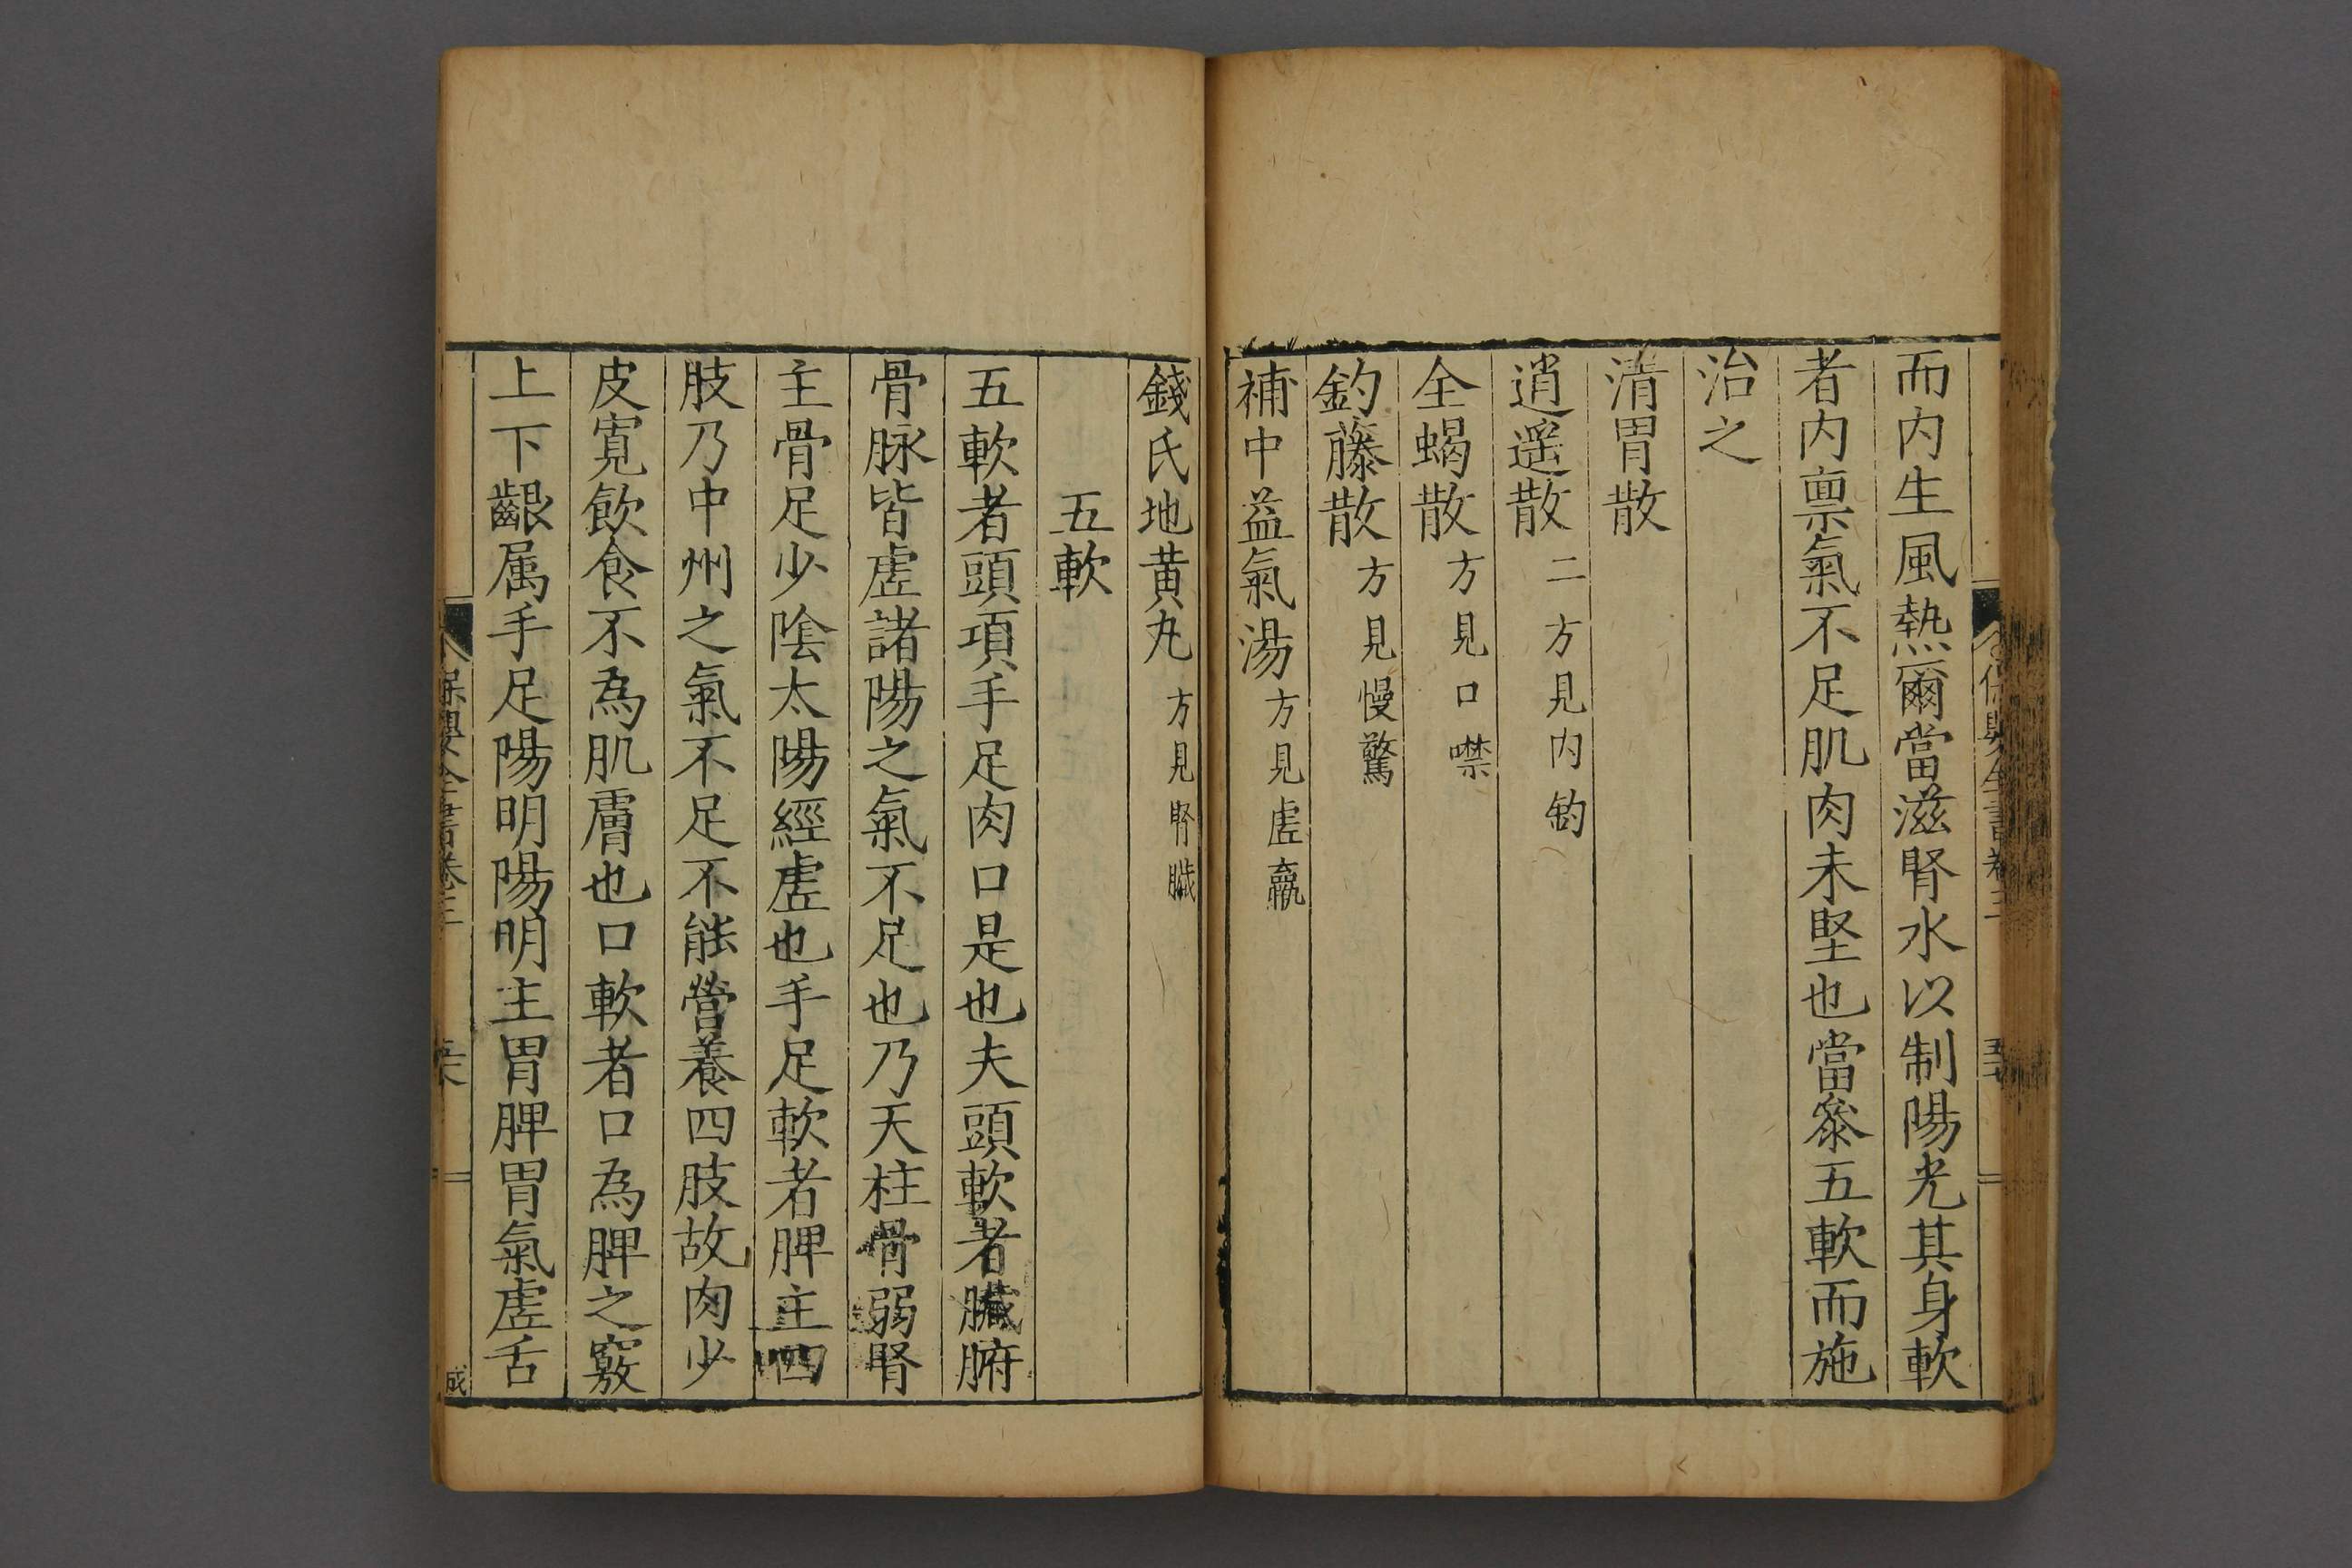 而内生風熱爾當滋腎水以制陽光其身軟
者内禀氣不足肌肉未堅也當叅五軟而施
治之
清胃散
逍遥散 二方見内釣
全蝎散 方見口噤
釣藤散 方見慢驚
補中益氣湯 方見虚羸
錢氏地黄丸 方見腎臟
五軟
五軟者頭項手足肉口是也夫頭軟者臟腑
骨脉皆虚諸陽之氣不足也乃天柱骨弱腎
主骨足少隂太陽經虚也手足軟者脾主四
肢乃中州之氣不足不能營養四肢故肉少
皮寛飲食不為肌膚也口軟者口為脾之竅
上下齦属手足陽明陽明主胃脾胃氣虚舌
保嬰全書卷三